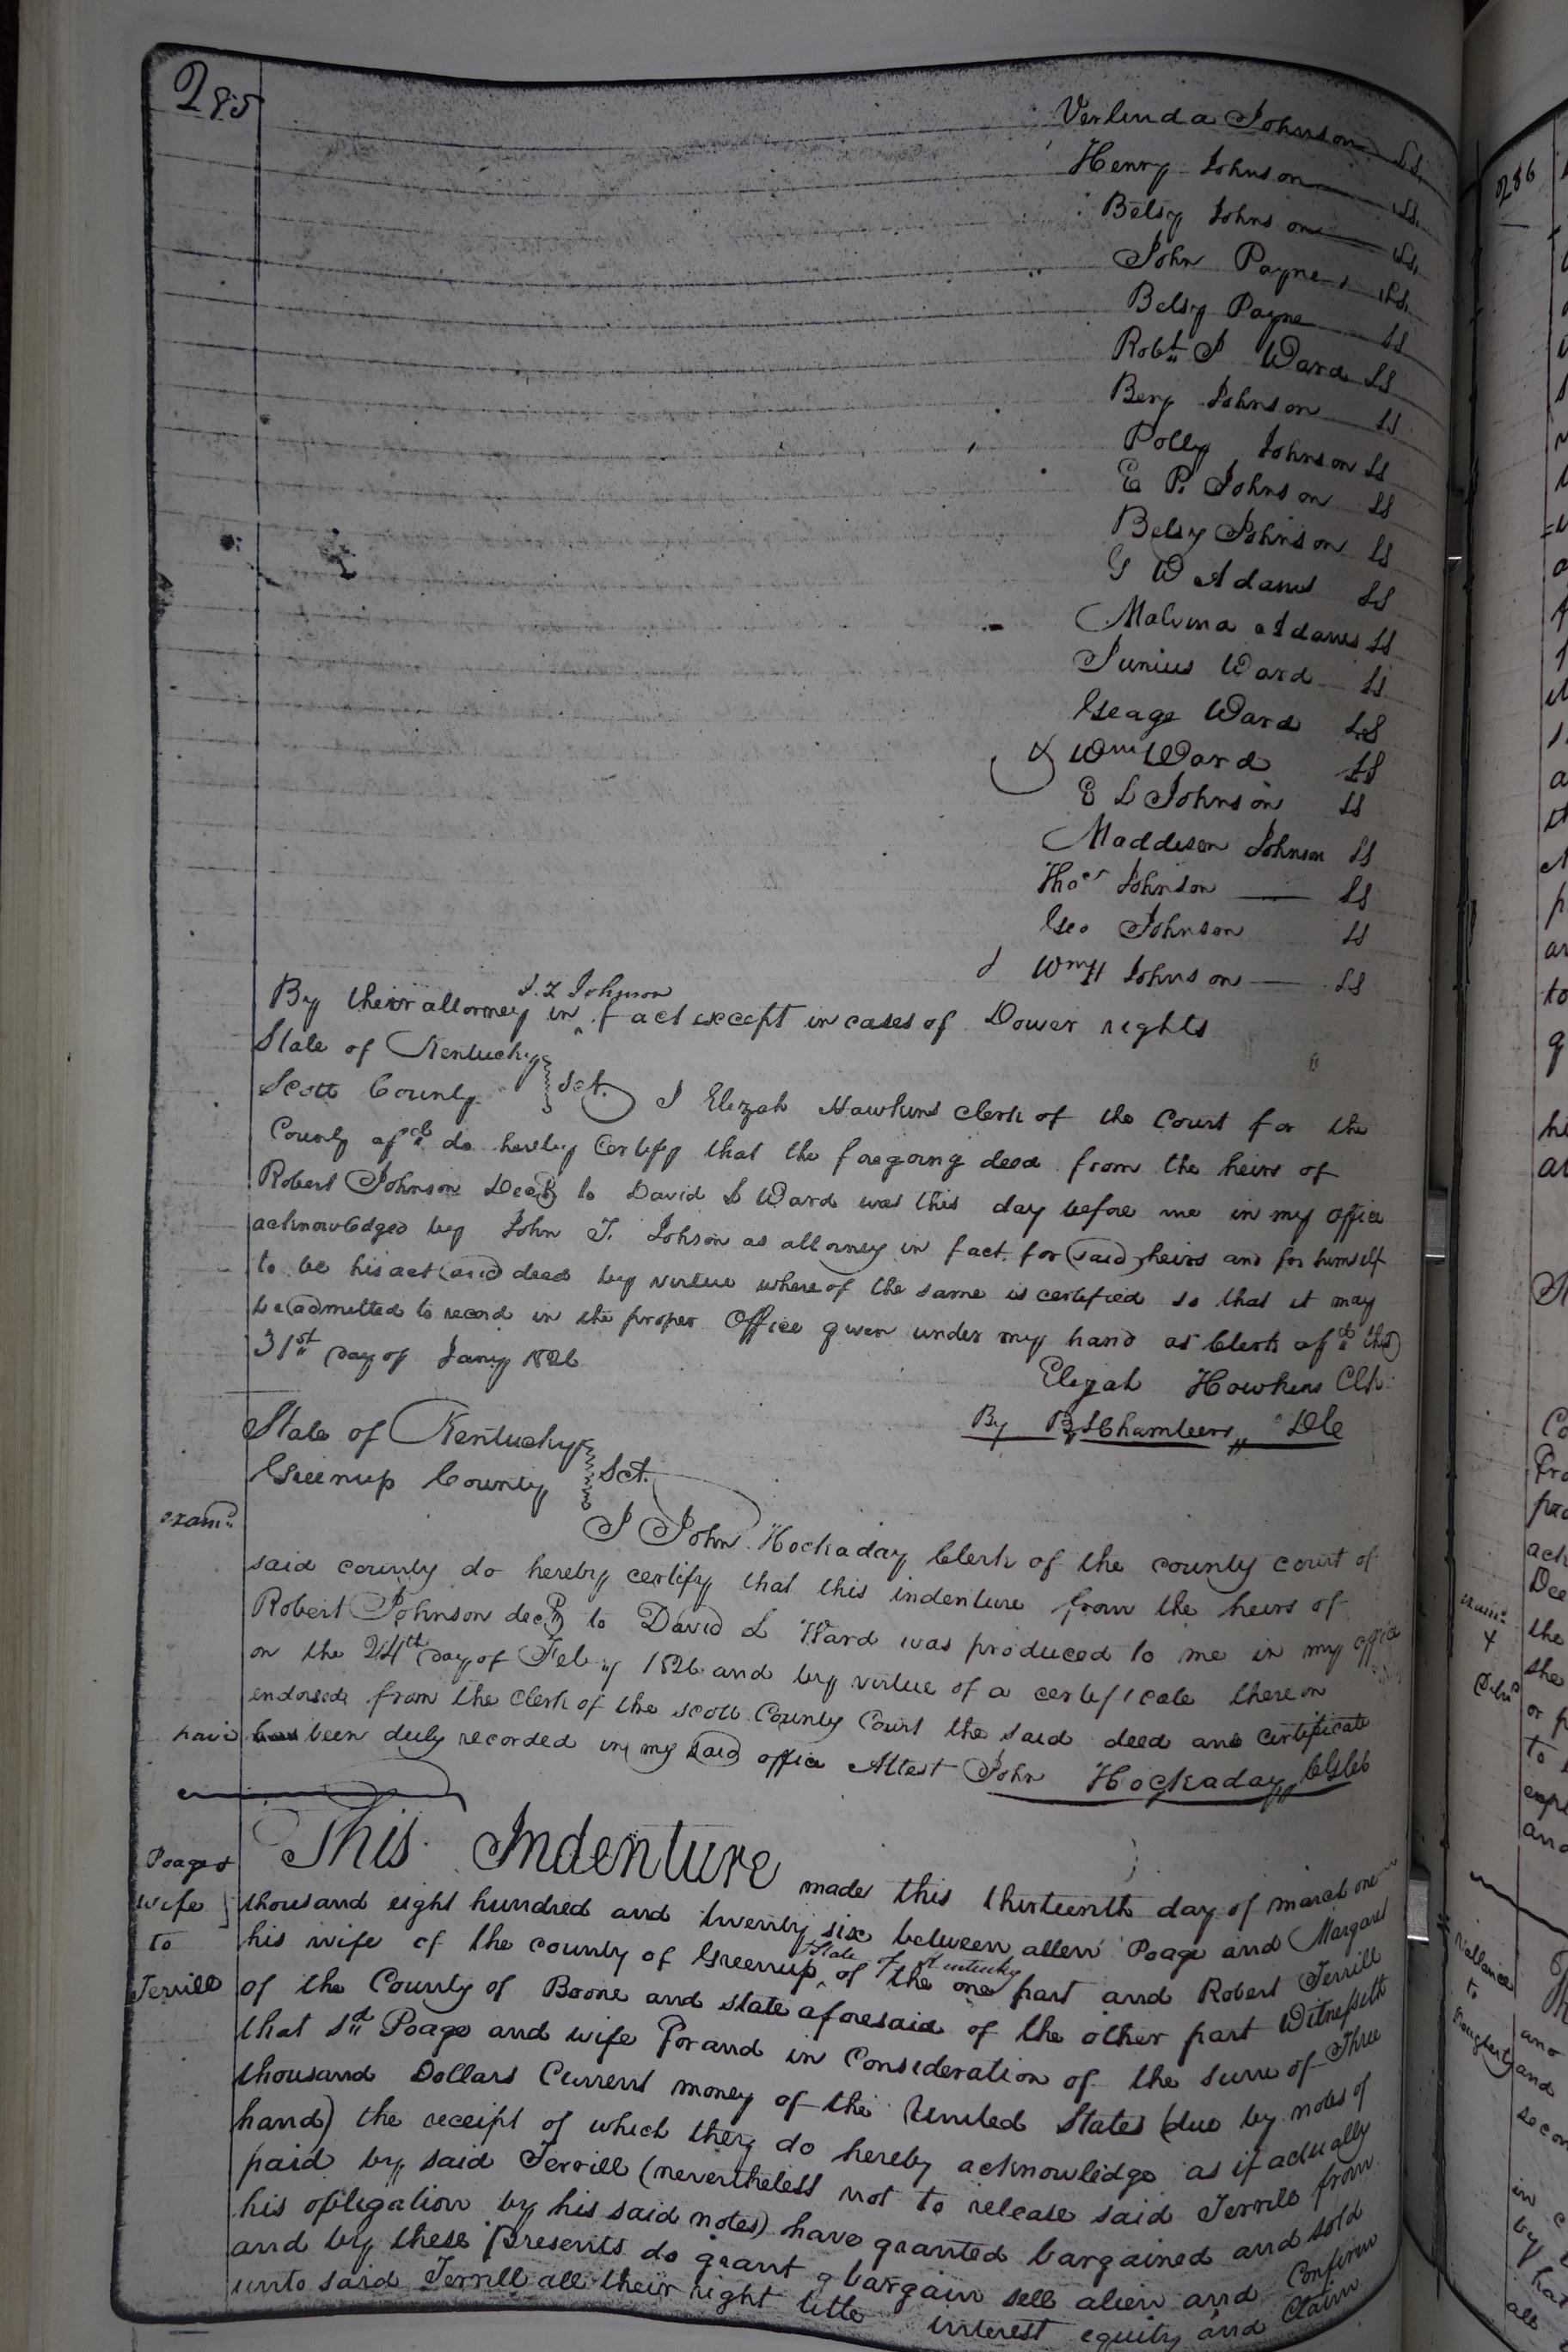 285
Verlinda Johnson LS.
Henry Johnson LS.
Betsy Johnson LS.
John Payne LS.
Betsy Payne LS
Robt J Ward LS
Benj Johnson LS
Polly Johnson LS
E P. Johnson LS
Betsy Johnson LS
G W Adams LS
Malvina Adams LS
Junius Ward LS
Geoage Ward LS
& Wm Ward LS
E L Johnson LS
Maddison Johnson LS
Thos Johnson LS
Geo Johnson LS
& Wm H Johnson LS
By their attorney in ^ J. T. Johnson fact except in cases of Dower rights
State of Kentucky
Scott County } Sct. I Elizah Hawkins clerk of the Court for the
County afsd do hereby Certify that the foregoing deed from the heirs of
Robert Johnson Decd to David L Ward was this day before me in my office
acknowledged by John T. Johson as attorney in fact for said heirs and for himself
to be his act and deed by virtue whereof the same is certified so that it may
be admitted to record in the proper Office given under my hand as Clerk afsd this
31st day of Jany 1826
Elizah Hawkins Clk
By B Chambers DC
State of Kentucky
Greenup County } Sct.
exam.
I John Hockaday Clerk of the county court of
said county do hereby certify that this indenture from the heirs of
Robert Johnson decd to David L Ward was produced to me in my office
on the 24th day of Feby 1826 and by virtue of a certificate thereon
endorsed from the Clerk of the scott County Court the said deed and certificate
have been duly recorded in my said office Attest John Hockaday
Poage &
wife
to
Terrill
This Indenture made this thirteenth day of march one
thousand eight hundred and twenty six between allen Poage and Margaret
his wife of the county of Greenup ^ State of Kentucky of the one part and Robert Terrill
of the County of Boone and state aforesaid of the other part Witnesseth
that sd Poage and wife For and in Consideration of the sum of Three
thousand Dollars Current money of the United States (due by notes of
hand) the receipt of which they do hereby acknowledge as if actually
paid by said Terrill (nevertheless not to release said Terrill from
his obligation by his said notes) have granted bargained and sold
and by these presents do grant bargain sell alien and Confirm
unto said Terrill all their right title interest equity and Claim
286